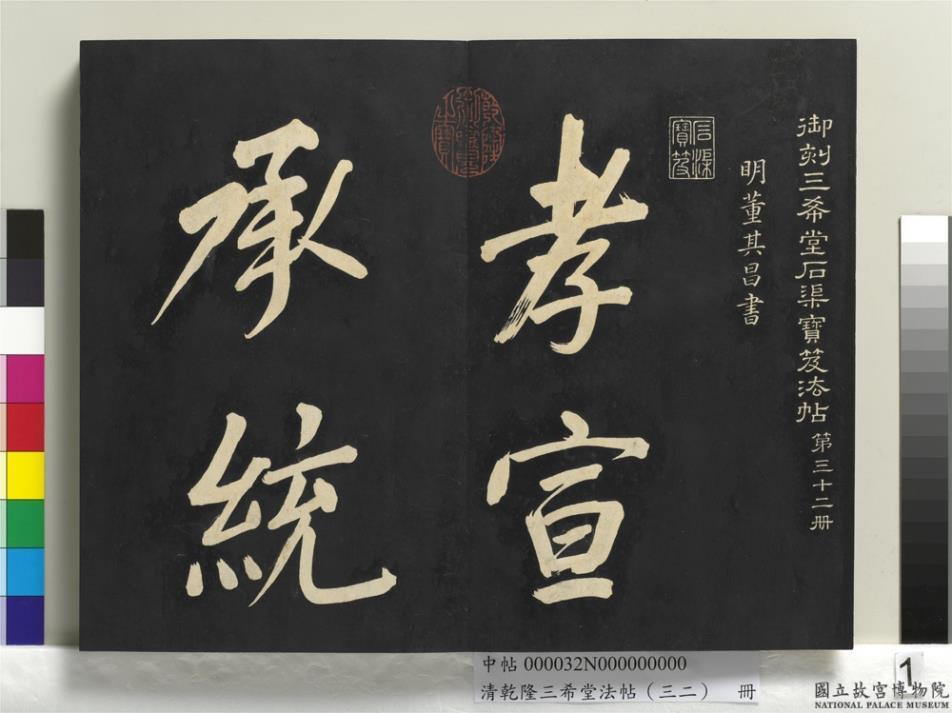 御刻三希堂石渠寶笈法帖 第三十二冊
明董其昌書
石渠寶笈
孝宣
承統
中帖 000032N000000000
清乾隆三希堂法帖（三二） 冊
1
國立故宮博物院
NATIONAL PALACE MUSEUM